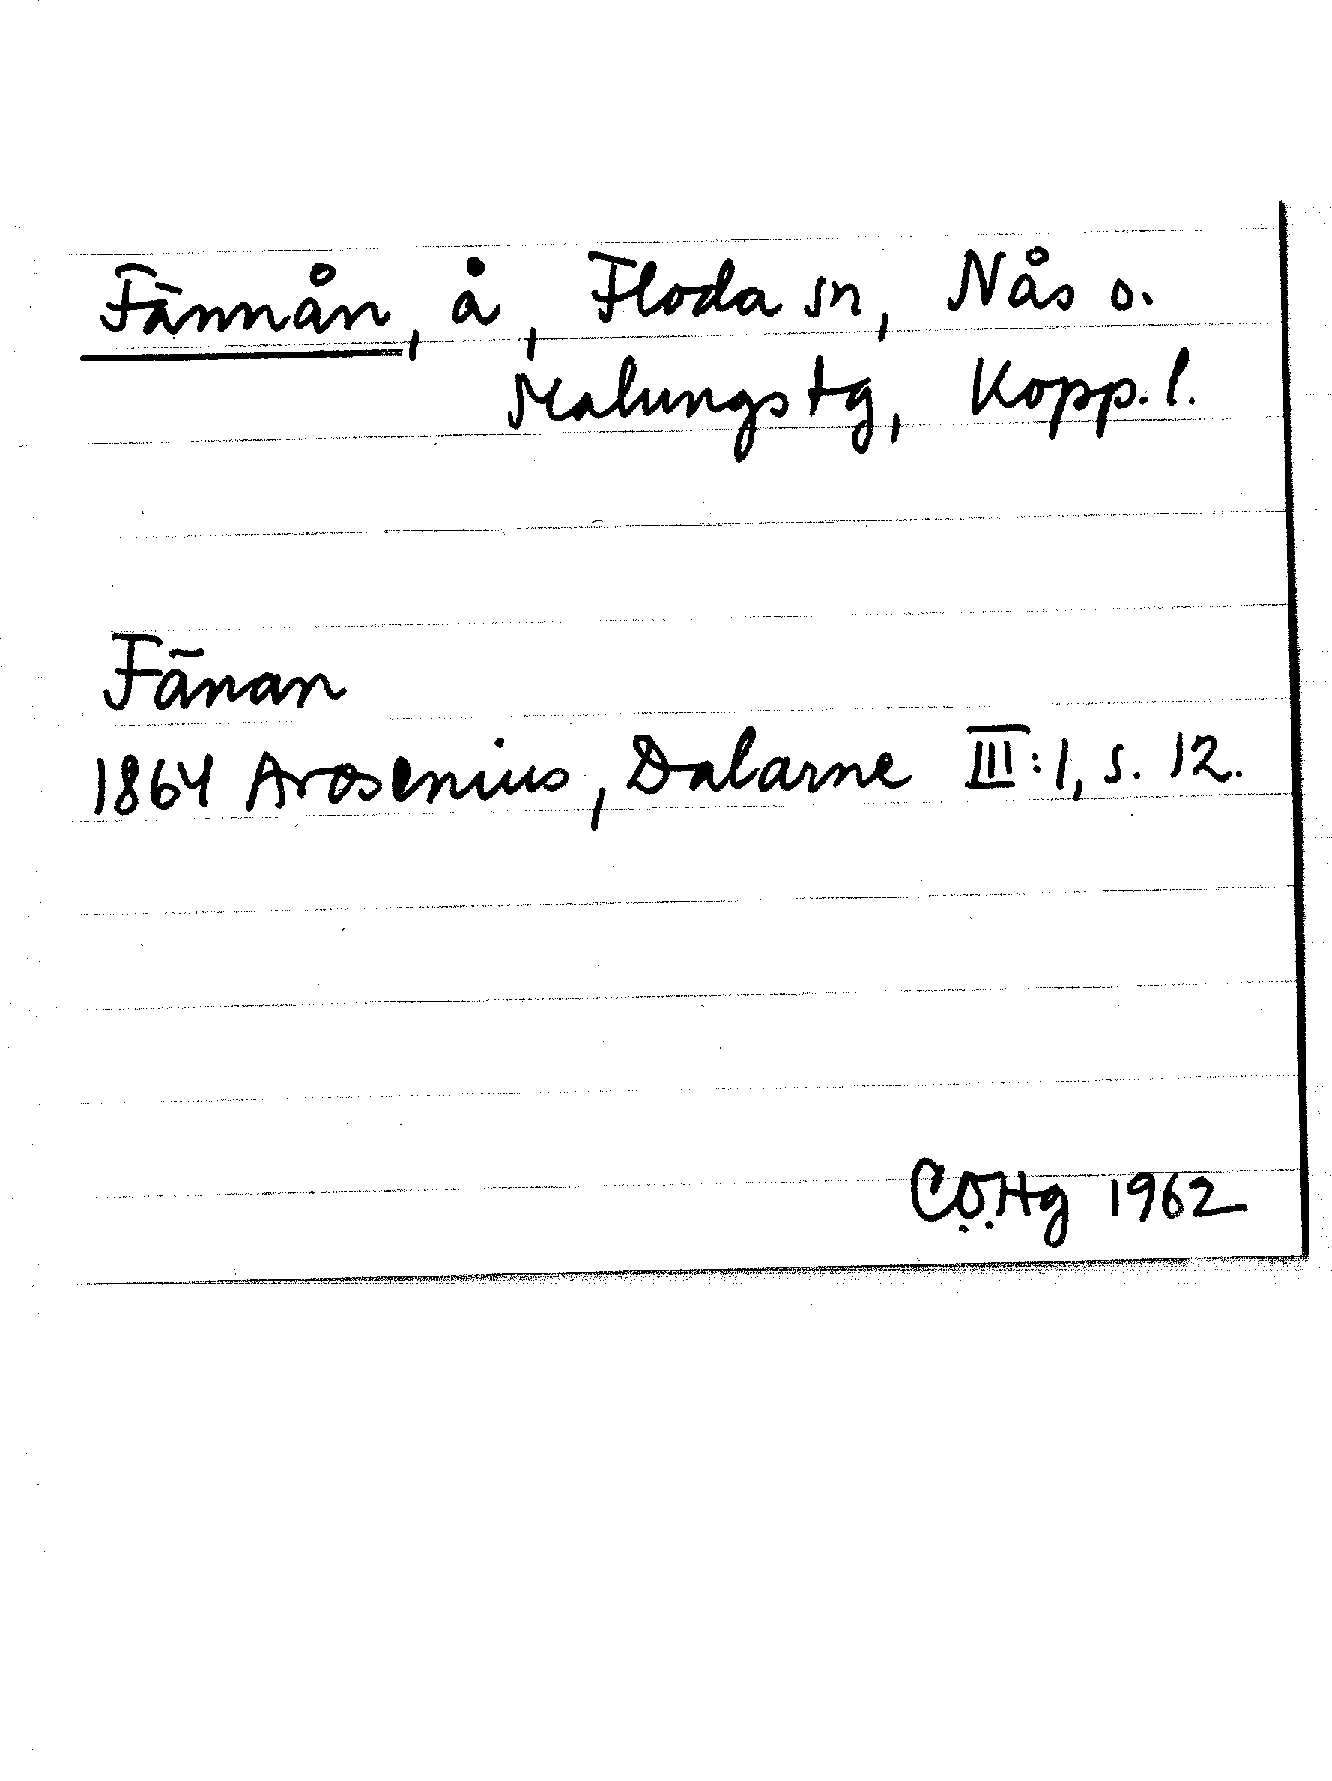 Fännån, å, Floda sn, Nås o.
Malungs tg, Kopp. l.
Fänan
1864 Arosenius, Dalarne III:1, s. 12.
CÖHg 1962